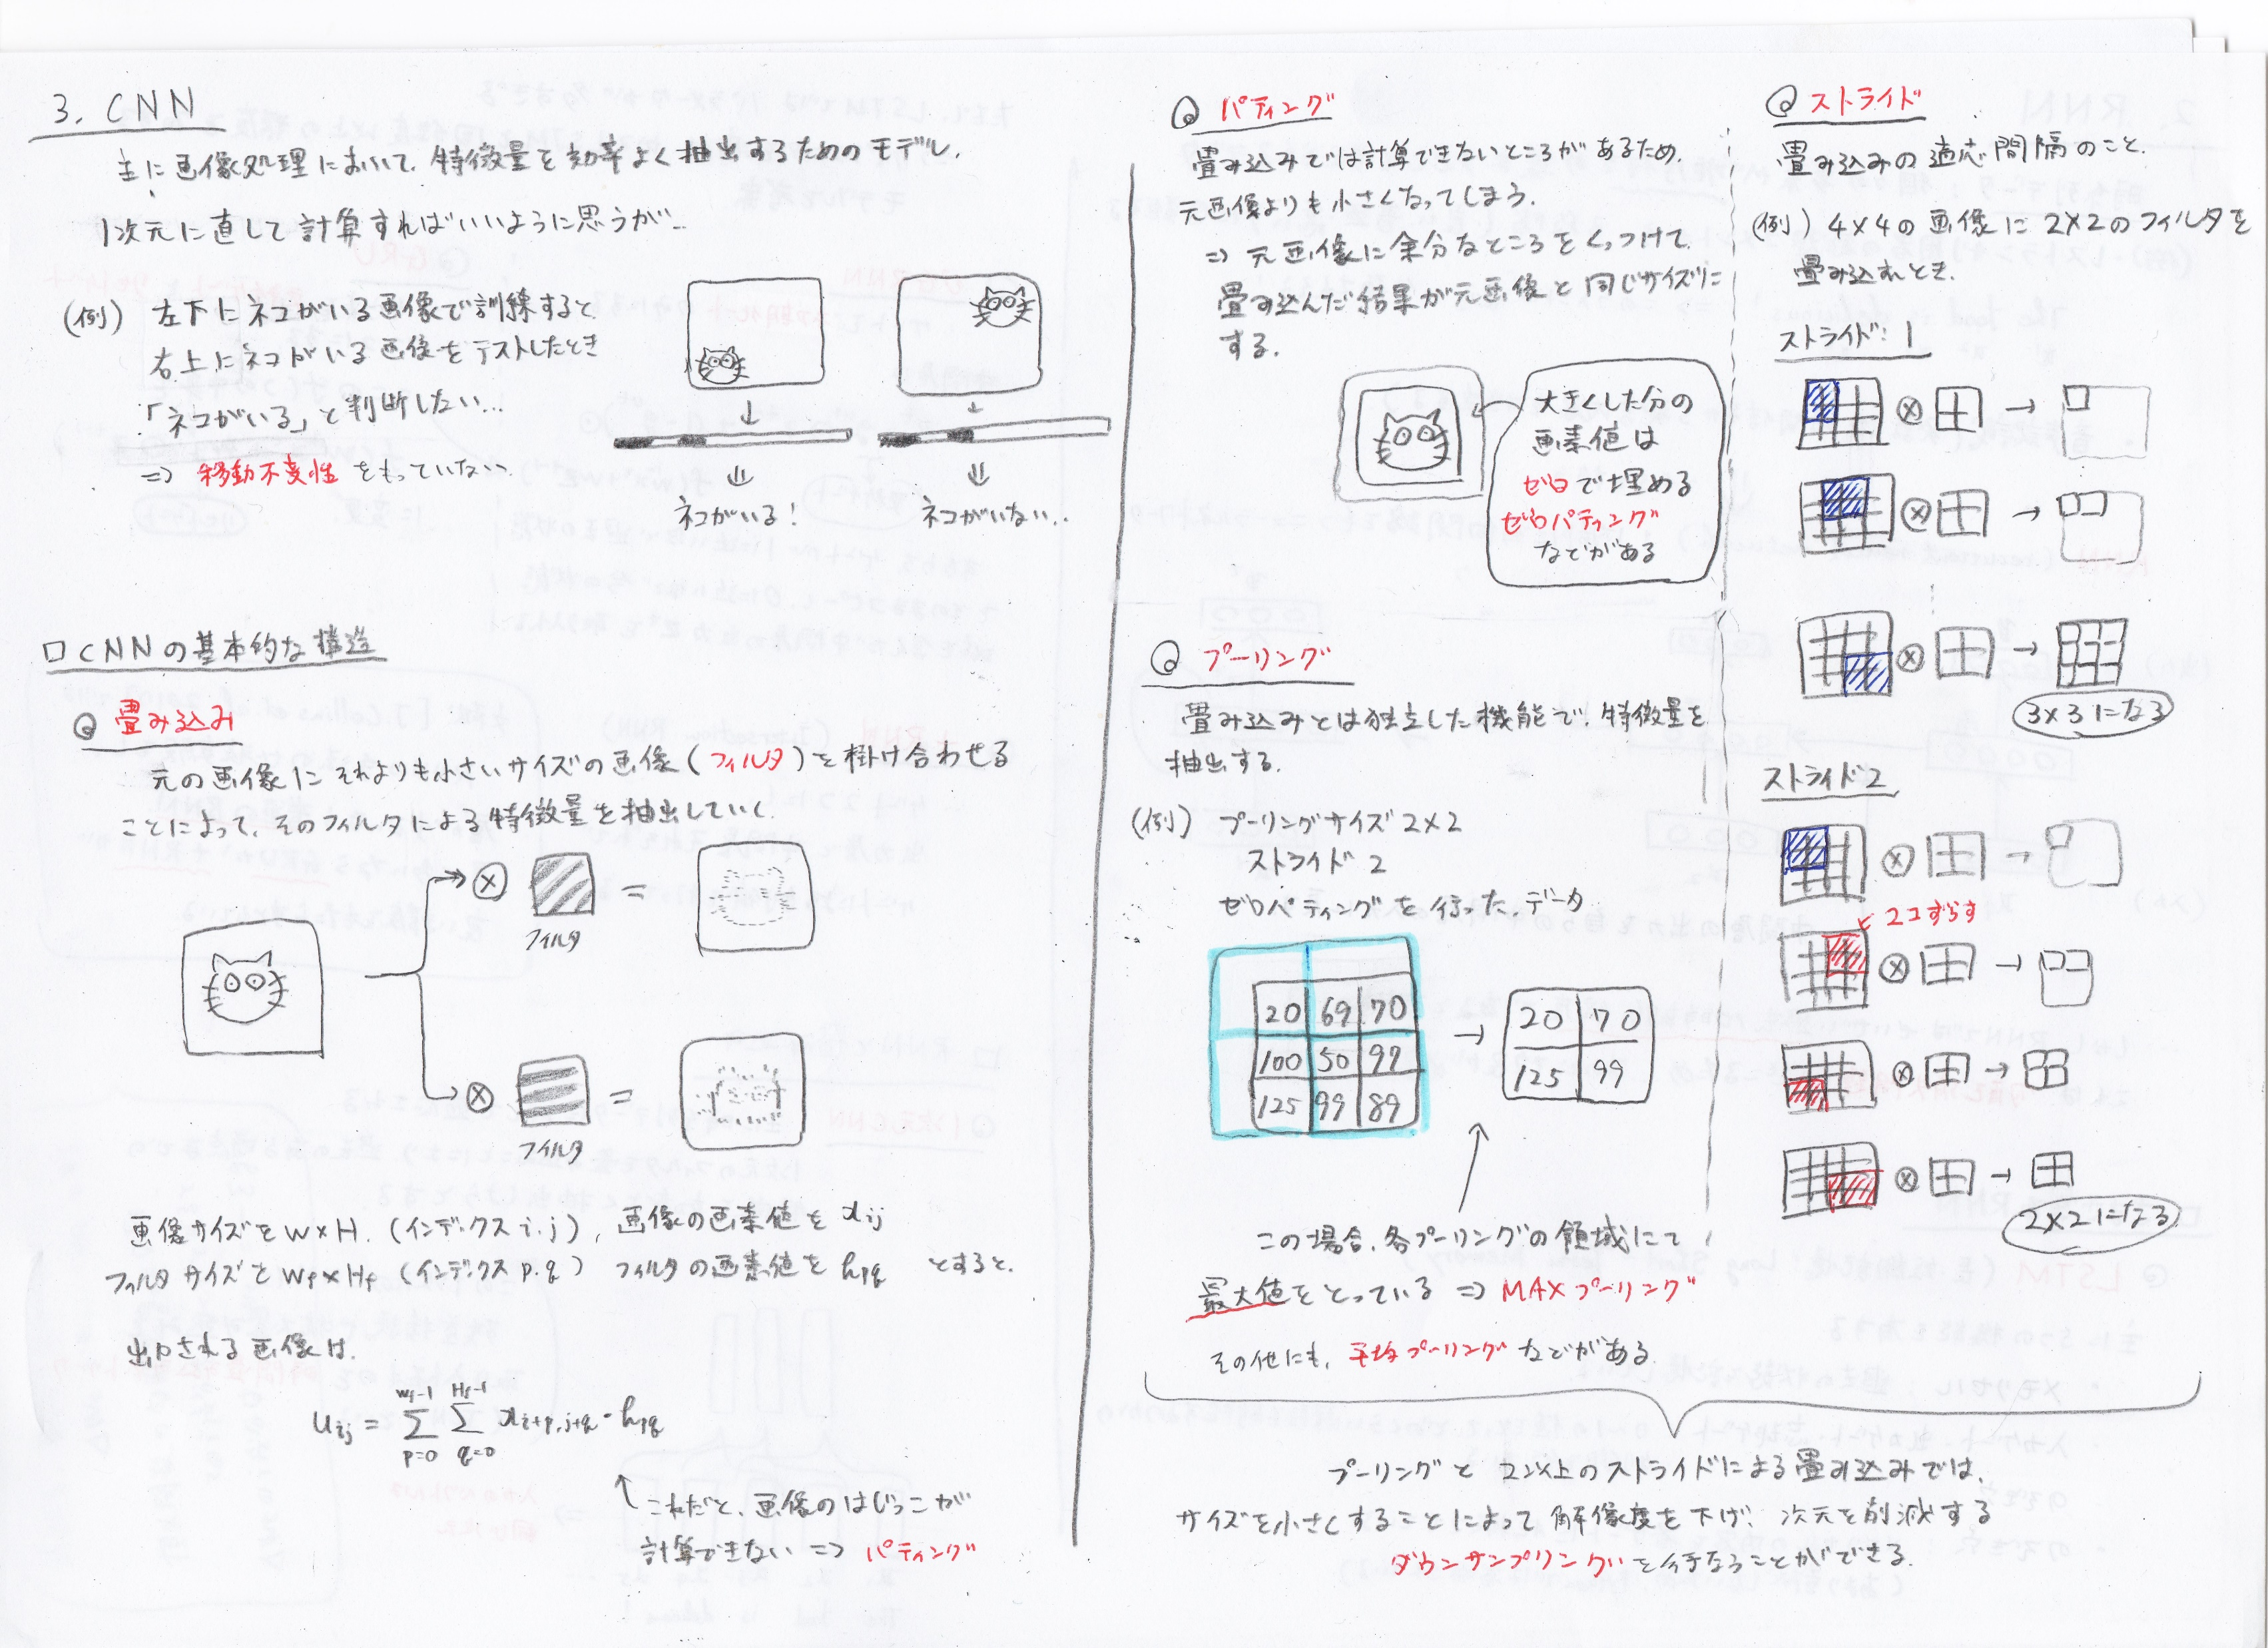 3. CNN
主に画像処理において、特徴量を効率よく抽出するためのモデル.
1次元に直して計算すればいいように思うが…
(例) 左下にネコがいる画像で訓練すると、
右上にネコがいる画像をテストしたとき
「ネコがいる」と判断しない…
⇒ 移動不変性をもっていない…
ネコがいる!
ネコがいない..
□ CNNの基本的な構造
◎ 畳み込み
元の画像にそれよりも小さいサイズの画像(フィルタ)を掛け合わせる
ことによって、そのフィルタによる特徴量を抽出していく.
⊗ フィルタ =
⊗ フィルタ =
画像サイズをW×H. (インデックスi.j), 画像の画素値をxij
フィルタサイズをWf×Hf (インデックスp.q) フィルタの画素値をhpq とすると.
出力される画像は.
uij = Σ(p=0, Wf-1) Σ(q=0, Hf-1) xi+p,j+q・hpq
↑これだと、画像のはじっこが
計算できない ⇒ パディング
◎ パディング
畳み込みでは計算できないところがあるため.
元画像よりも小さくなってしまう.
⇒ 元画像に余分なところをくっつけて.
畳み込んだ結果が元画像と同じサイズに
する.
大きくした分の
画素値は
ゼロで埋める
ゼロパディング
などがある
◎ プーリング
畳み込みとは独立した機能で、特徴量を
抽出する.
(例) プーリングサイズ 2×2
ストライド 2
ゼロパディングを行ったデータ
20 69 70
100 50 97
125 99 89
→
20 70
125 99
この場合、各プーリングの領域にて
最大値をとっている ⇒ MAXプーリング
その他にも、平均プーリングなどがある
◎ ストライド
畳み込みの適応間隔のこと.
(例) 4×4の画像に2×2のフィルタを
畳み込むとき.
ストライド: 1
⊗ →
⊗ →
⊗ →
3×3になる
ストライド2
⊗ →
2コずらす
⊗ →
⊗ →
⊗ →
2×2になる
プーリングと2以上のストライドによる畳み込みでは、
サイズを小さくすることによって解像度を下げ、次元を削減する
ダウンサンプリングを行なうことができる.